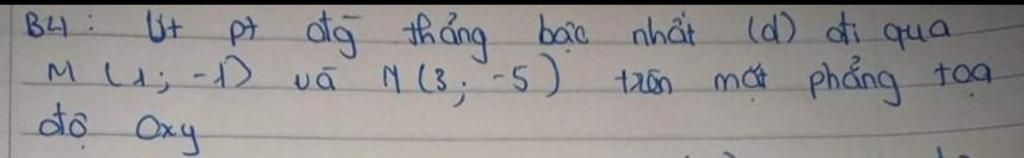 B4: Vt pt đtg thẳng bậc nhất (d) đi qua
M (1; -1) và N (3; -5) trên mặt phẳng toạ
độ Oxy